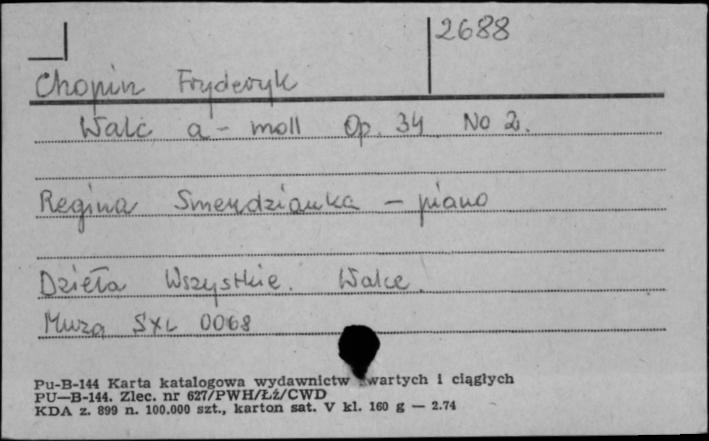 2688
Chopin Fryderyk
Walc a-moll Op. 34 No 2.
Regina Smendzianka – piano
Dzieła Wszystkie. Walce.
Muza SXL 0068
Pu-B-144 Karta katalogowa wydawnictw zwartych i ciągłych
PU—B-144. Zlec. nr 627/PWH/Łż/CWD
KDA z. 899 n. 100.000 szt., karton sat. V kl. 160 g — 2.74